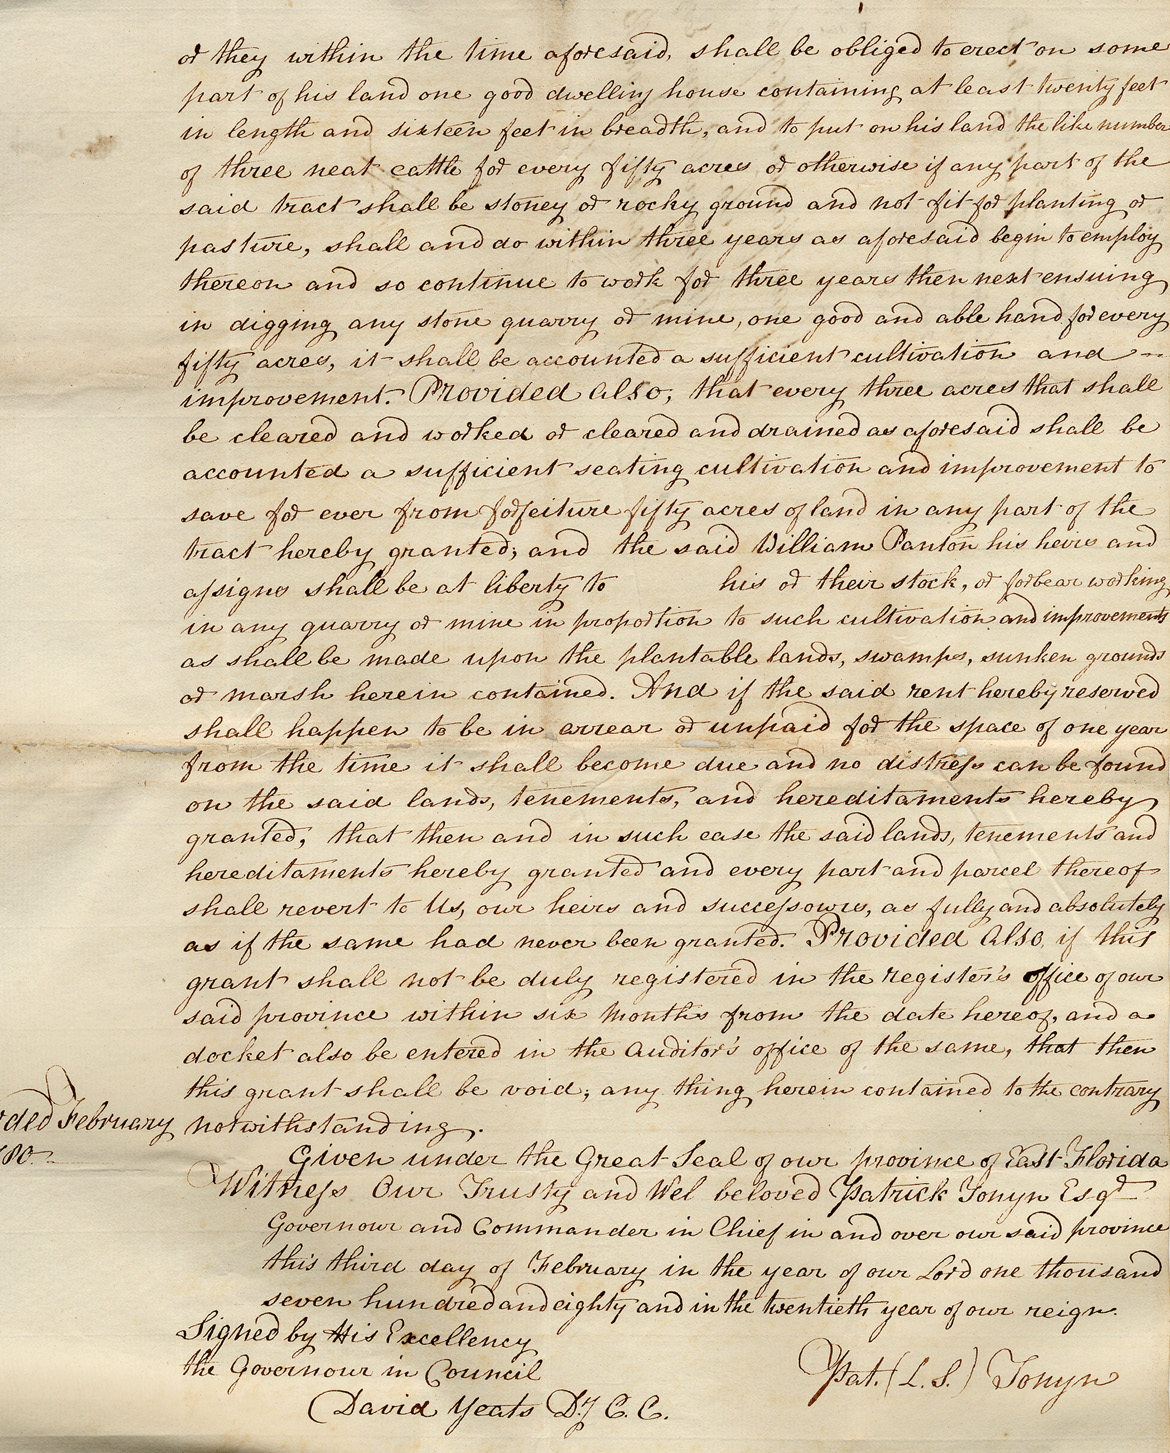 or they within the time aforesaid, shall be obliged to erect on some
part of his land one good dwelling house containing at least twenty feet
in length and sixteen feet in breadth, and to put on his land the like number
of three neat cattle for every fifty acres or otherwise if any part of the
said tract shall be stoney or rocky ground and not fit for planting or
pasture, shall and do within three years as aforesaid begin to employ
thereon and so continue to work for three years then next ensuing
in digging any stone quarry or mine, one good and able hand for every
fifty acres, it shall be accounted a sufficient cultivation and --
improvement. Provided also, that every three acres that shall
be cleared and worked or cleared and drained as aforesaid shall be
accounted a sufficient seating cultivation and improvement to
save for ever from forfeiture fifty acres of land in any part of the
tract hereby granted; and the said William Panton his heirs and
assigns shall be at liberty to his or their stock, or forbear working
in any quarry or mine in proportion to such cultivation and improvements
as shall be made upon the plantable lands, swamps, sunken grounds
or marsh herein contained. And if the said rent hereby reserved
shall happen to be in arrear or unpaid for the space of one year
from the time it shall become due and no distress can be found
on the said lands, tenements, and hereditaments hereby
granted, that then and in such case the said lands, tenements and
hereditaments hereby granted and every part and parcel thereof
shall revert to Us, our heirs and successours, as fully and absolutely
as if the same had never been granted. Provided also if this
grant shall not be duly registered in the register's office of our
said province within six months from the date hereof, and a
docket also be entered in the auditor's office of the same, that then
this grant shall be void; any thing herein contained to the contrary
notwithstanding.
ded February
80
Given under the Great Seal of our province of East Florida
Witness Our Trusty and Wel beloved Patrick Tonyn Esqr
Governour and Commander in Chief in and over our said province
this third day of February in the year of our Lord one thousand
seven hundred and eighty and in the twentieth year of our reign.
Signed by His Excellency
the Governour in Council
Pat. (L. S.) Tonyn
David Yeats Dy C. C.